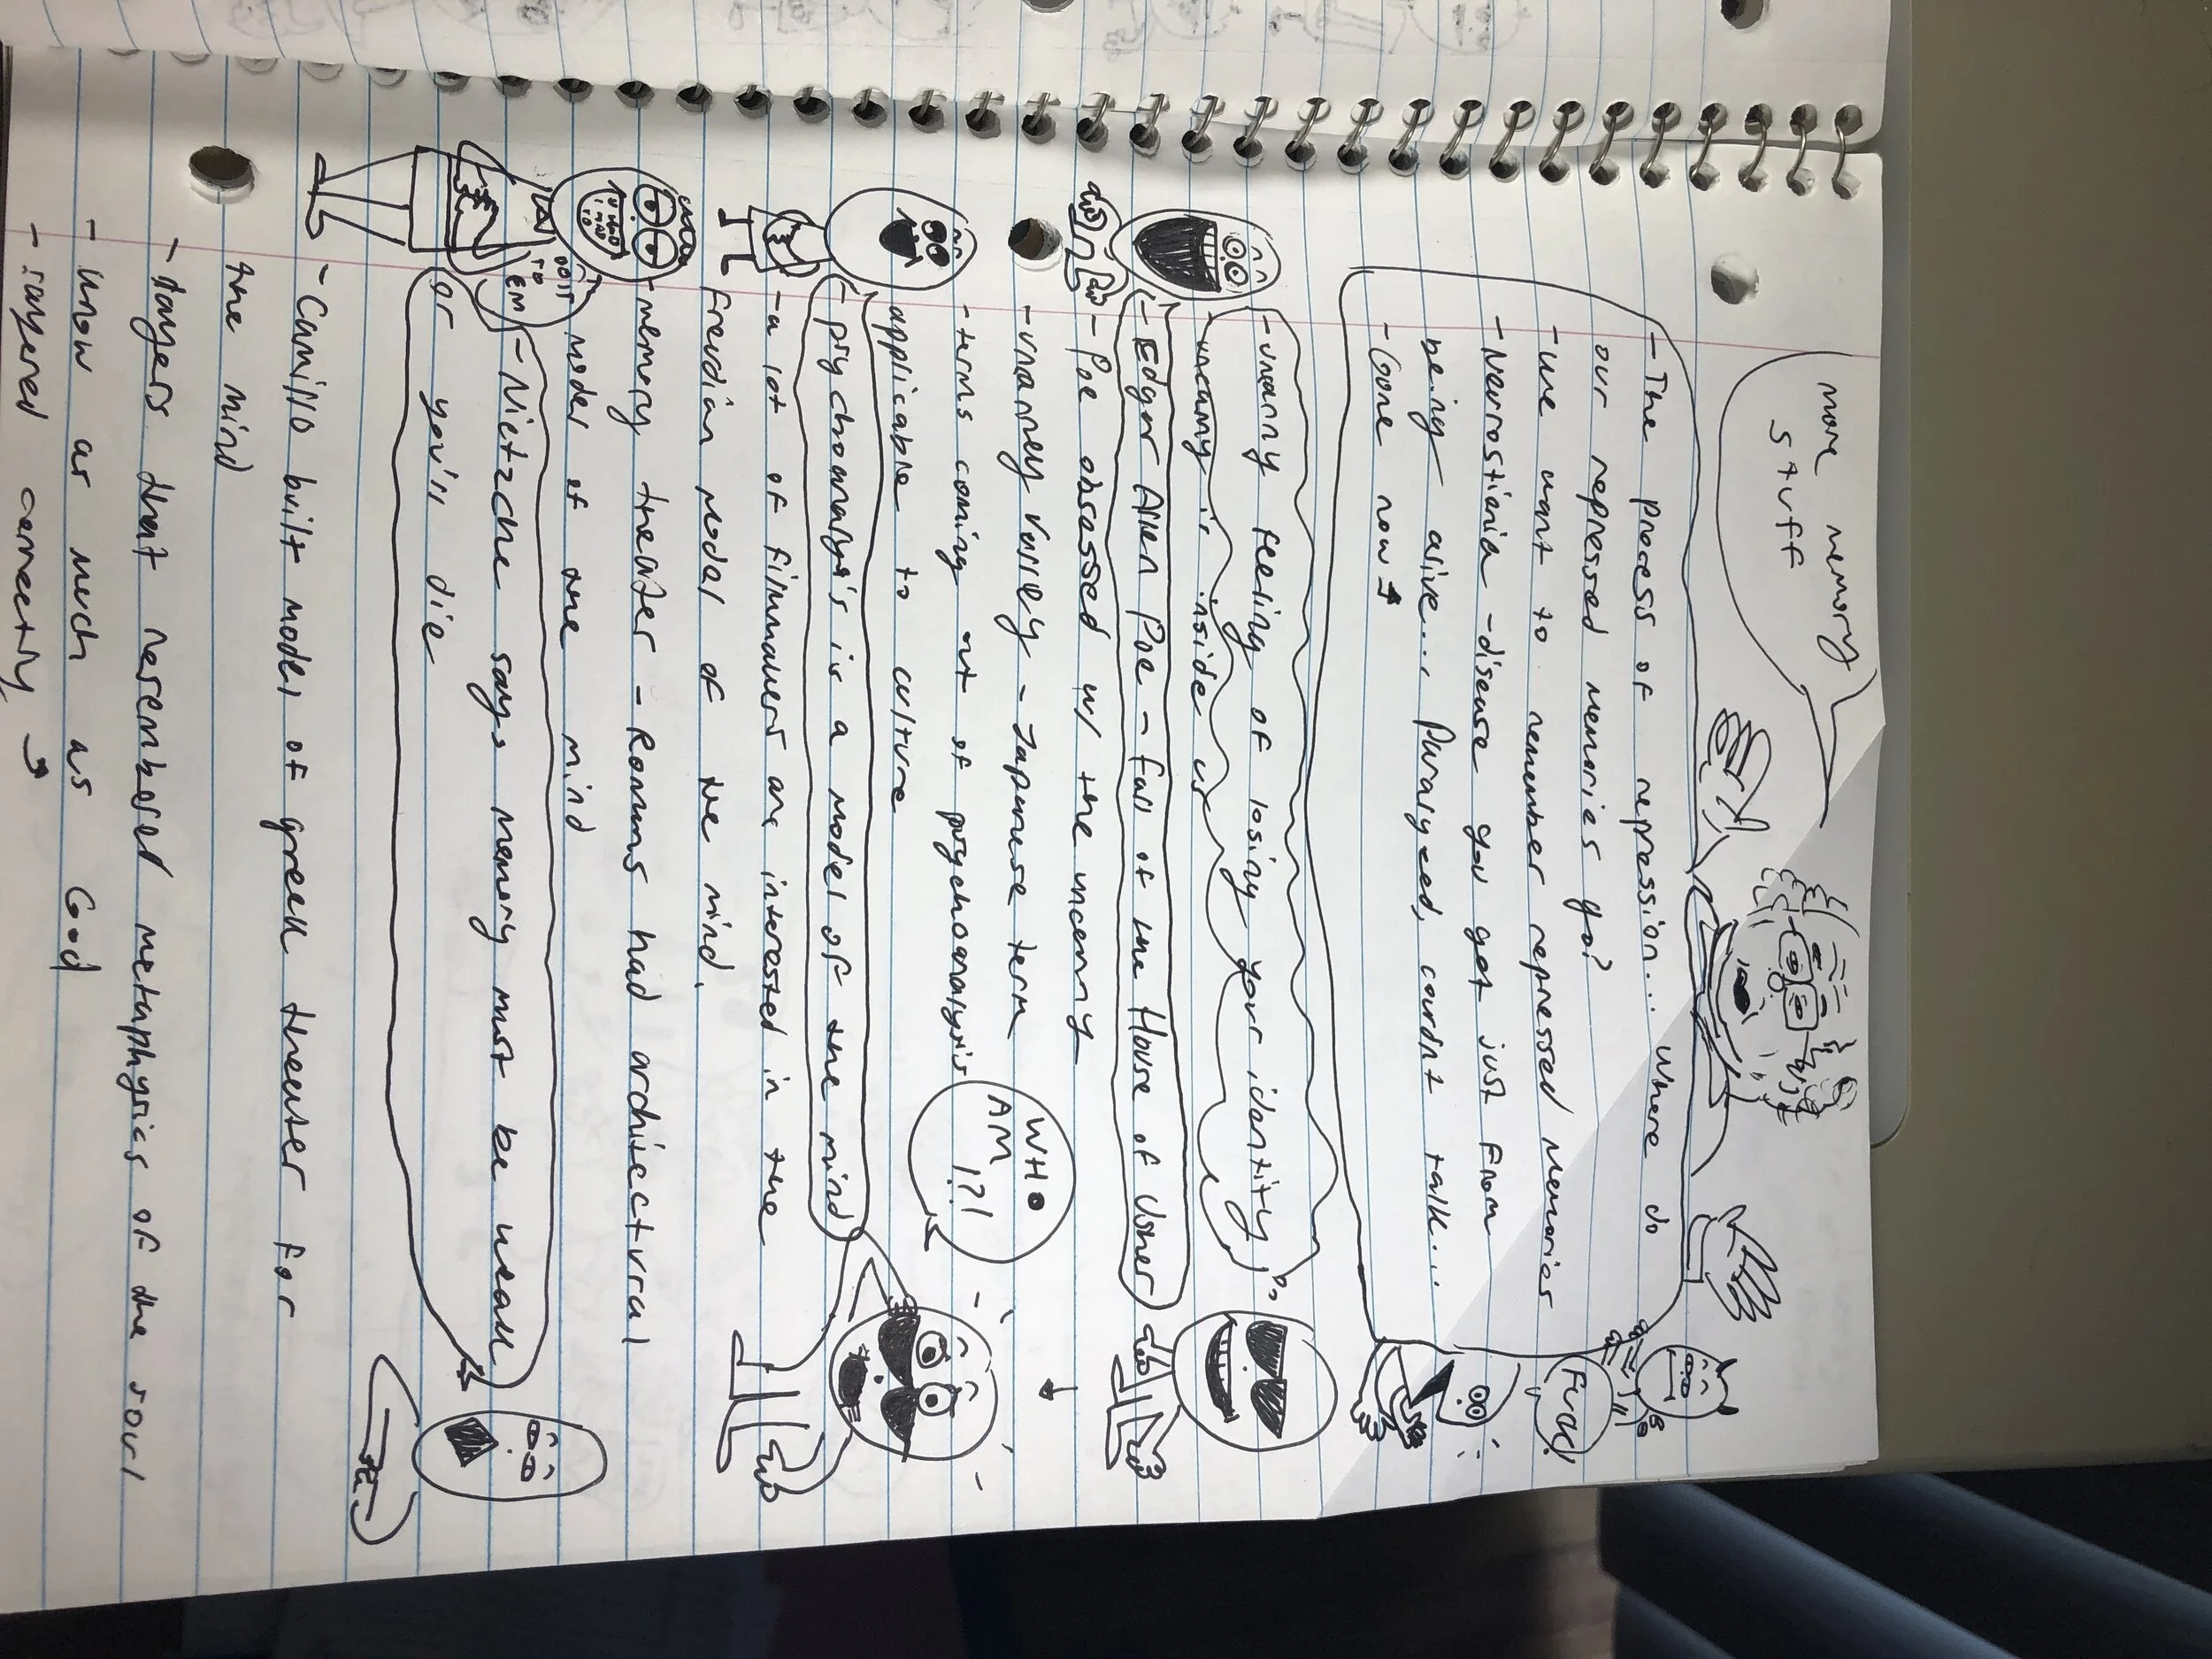 more memory
stuff
- The process of repression... where do
our repressed memories go?
- we want to remember repressed memories
- Neurostienia - disease you get just from
being alive... Paralyzed, couldnt talk...
- Gone now
Fuck!
- uncanny feeling of losing your identity
uncanny is inside us
- Edgar Allen Poe - fall of the House of Usher
- Poe obsessed w/ the uncanny
- unanney valley - Japanese term
- terms coming out of psychoanalysis
applicable to culture
WHO
AM
I?!
- psychoanalysis is a model of the mind
- a lot of filmmakers are interested in the
freudian model of the mind.
- memory theater - Romans had architectural
model of the mind
DOIT
TO
EM
- Nietzche says memory must be weak
or you'll die
- Camillo built model of greek theater for
the mind
- stagers that resembled metaphysics of the soul
- know as much as God